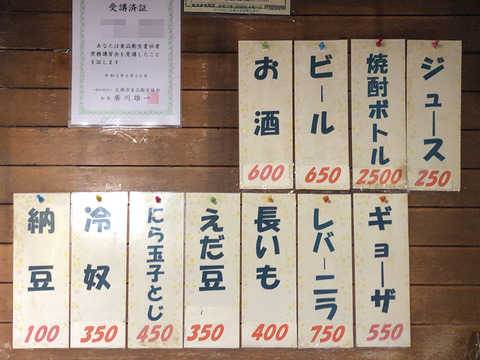 受講済証
あなたは食品衛生責任者
実務講習会を受講したこと
を証します
一般社団法人 札幌市食品衛生協会
会長 廣川雄一
ジュース
250
焼酎ボトル
2500
ビール
650
お酒
600
ギョーザ
550
レバーニラ
750
長いも
400
えだ豆
350
にら玉子とじ
450
冷奴
350
納豆
100